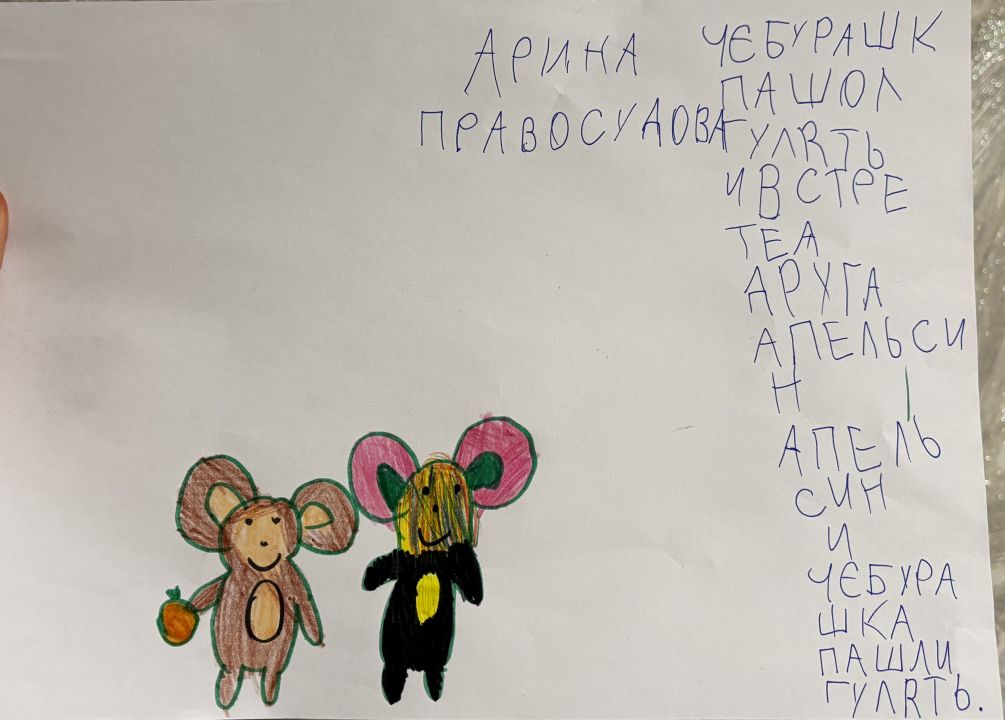 АРИНА
ПРАВОСУДОВА
ЧЕБУРАШК
ПАШОЛ
ГУЛЯТЬ
И ВСТРЕ
ТЕА
ДРУГА
АПЕЛЬСИ
Н
АПЕЛЬ
СИН
И
ЧЕБУРА
ШКА
ПАШЛИ
ГУЛЯТЬ.